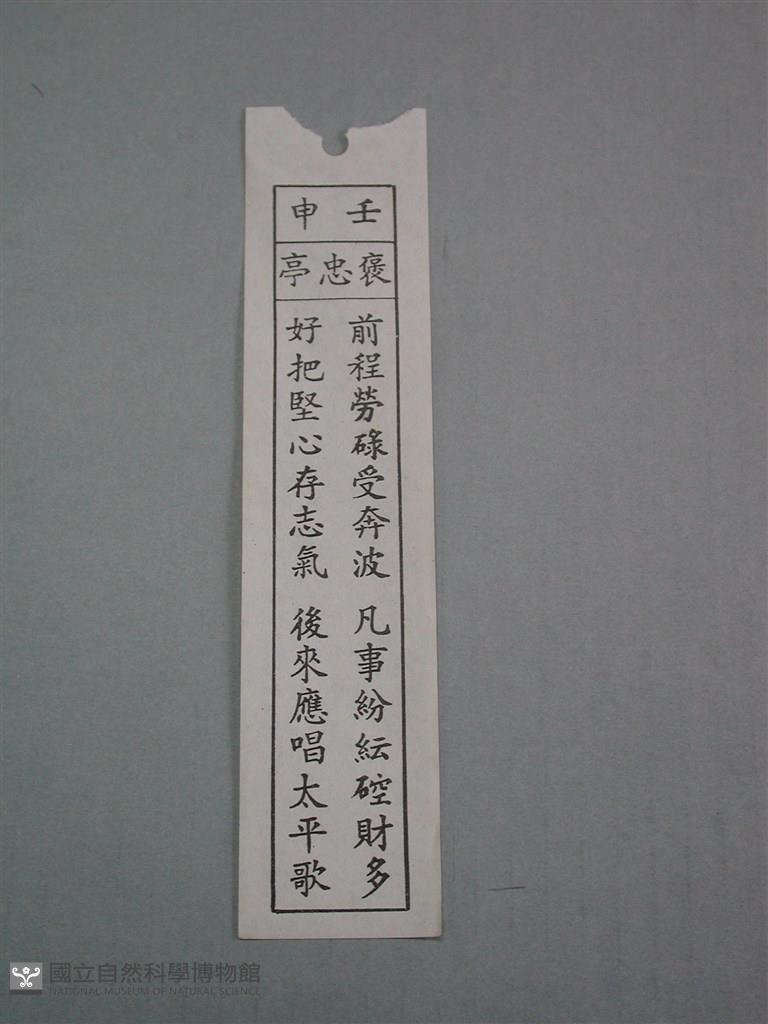 壬申
褒忠亭
前程勞碌受奔波 凡事紛紜硿財多
好把堅心存志氣 後來應唱太平歌
國立自然科學博物館
NATIONAL MUSEUM OF NATURAL SCIENCE